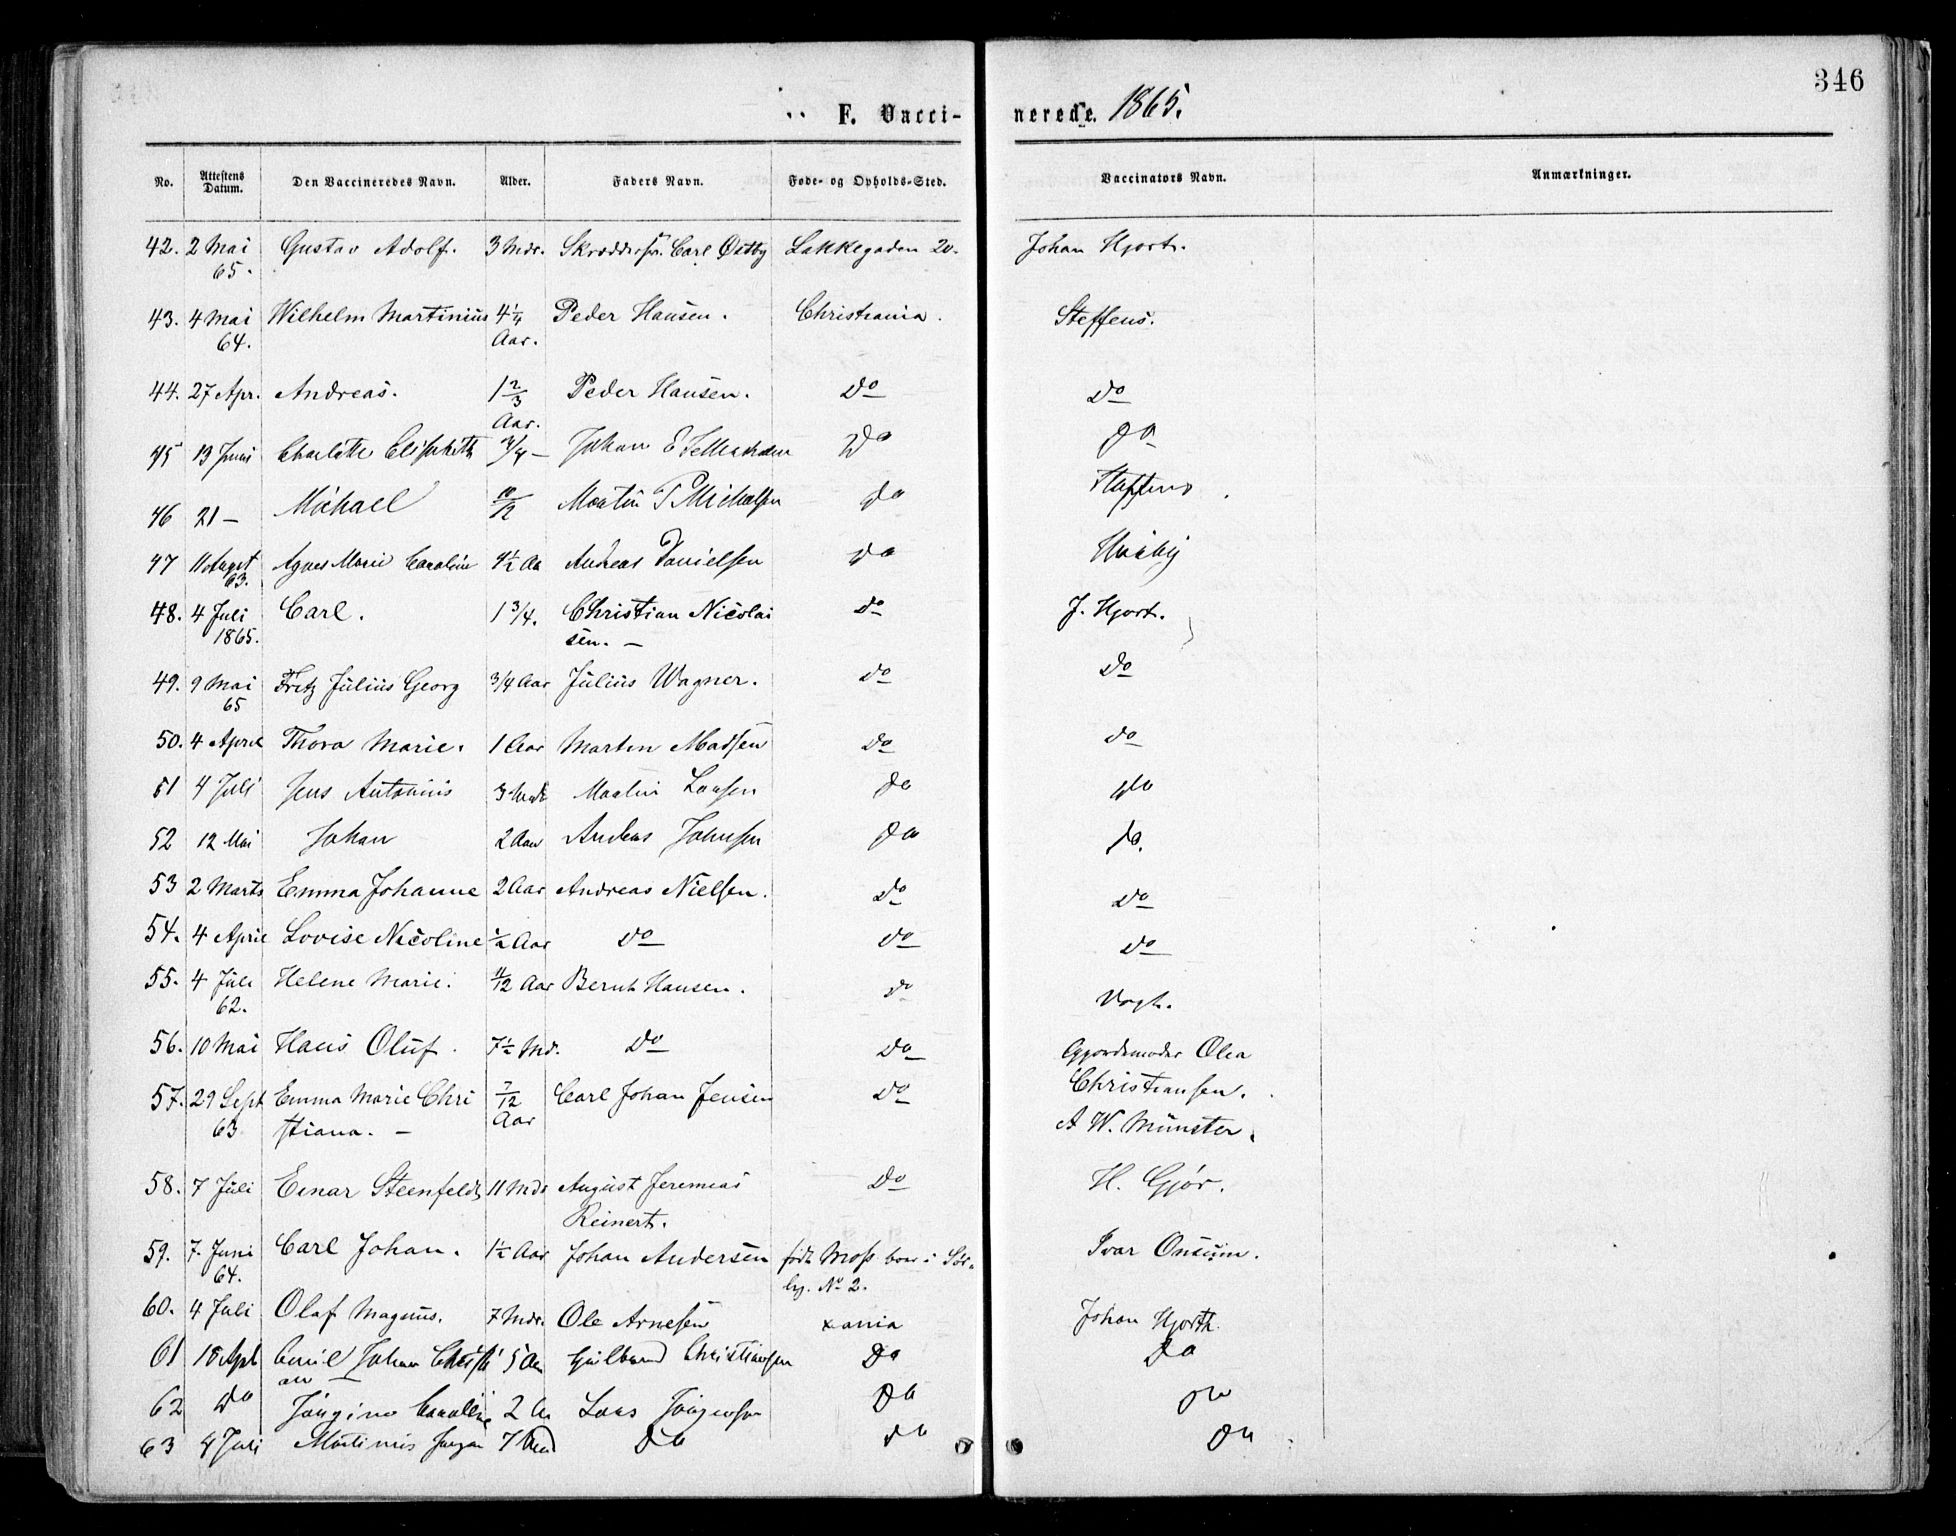 346
F. Vacci- nerede. 1865.
No. Attestens Datum. Den Vaccineredes Navn. Alder. Faders Navn. Føde- og Opholds-Sted. Vaccinators Navn. Anmærkninger.
42. 2 Mai Gustav Adolf. 3 Mdr. Carl Østby Lakkegaden 20. Johan Hjort.
65.
43. 4 Mai Wilhelm Martinius 4¼ Peder Hansen. Christiania. Steffens.
64. Aar.
44. 27 Apr. Andreas. 1⅔ Peder Hansen. do do
Aar.
45 13 Juni Charlotte Elisabeth 3/4 – Johan E do do
46 21 – Michael 10/12 Martin P Michaelsen do Steffens
47 11 August Agnes Marie Caroline 4½ Aa Andreas Danielsen do
63.
48. 4 Juli Carl. 1 3/4. Christian Nicolai do J. Hjort.
1865. sen. –
49. 9 Mai Fritz Julius Georg 3/4 Aar Julius Wagner. do do
65
50. 4 April Thora Marie. 1 Aar Martin Madsen do do
51 4 Juli Jens Antonius 3 Mdr Martin Larsen do do
52 12 Mai Johan 2 Aar Anders Johnsen do do.
53 2 Marts Emma Johanne 2 Aar Andreas Nielsen. do do
54. 4 April Lovise Nicoline ½ Aar do do do
55. 4 Juli Helene Marie. 11/12 Aar Bernh Hansen. do Vogt.
62.
56. 10 Mai Hans Oluf. 7½ Md. do do Gjordemoder Olea
Christiansen.
57. 29 Sept Emma Marie Chri 7/12 Carl Johan Jensen do
63 stiana. – Aar A W. Münster.
58. 7 Juli Einar Steenfeldt 11 Mdr August Jeremias do H. Gjør.
Reinert.
59. 7. Juni Carl Johan. 1½ Aar Johan Andersen født Moss boer i Sør-
64. by. No 2. Ivar Onsum.
60. 4 Juli Olaf Magnus. 7 Mdr. Ole Arnesen xania Johan Hjorth.
61 18 Apl Emil Johan Christi 5 Aar Gulbrand Christiansen do do
an –
62 do Jørgine Caroline 2 Aa Lars Jørgensen do do
63 4 Juli Martinus Jørgen 7 do do do